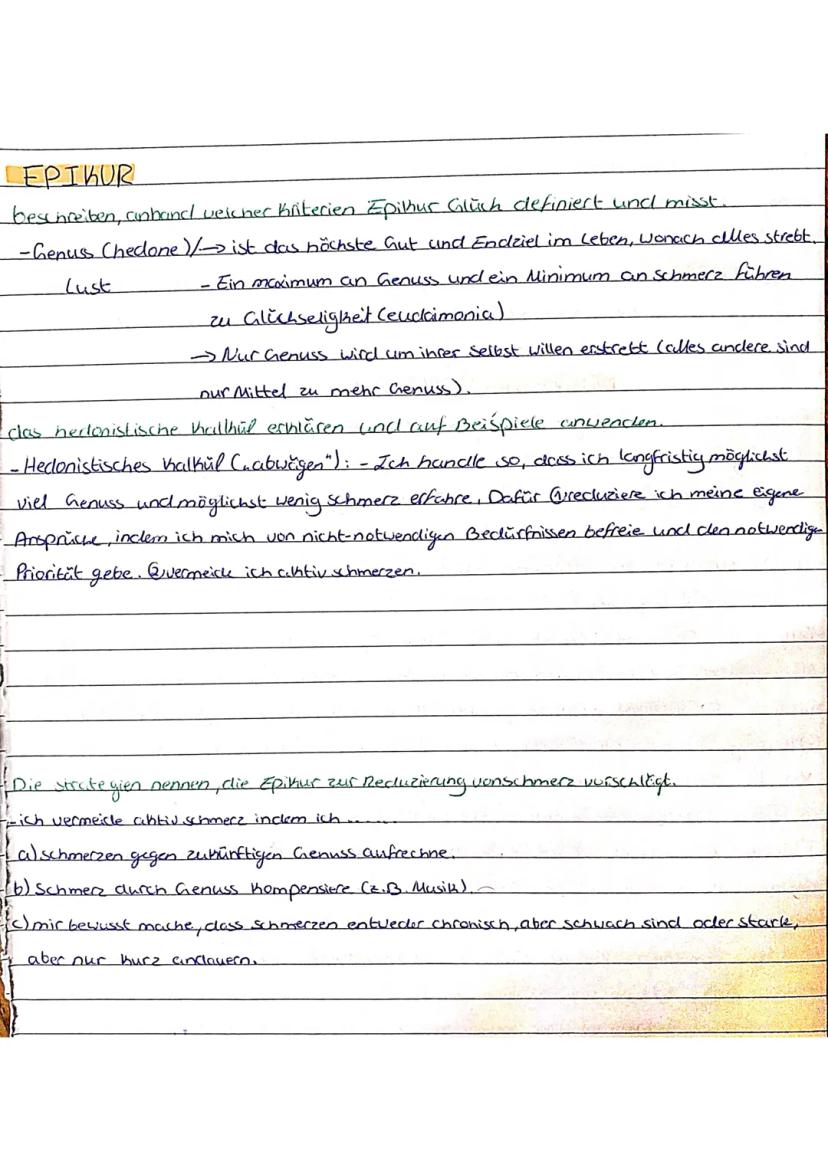 EPIKUR
beschreiben, anhand welcher Kriterien Epikur Glück definiert und misst.
- Genuss (hedone)/→ ist das höchste Gut und Endziel im Leben, wonach alles strebt.
Lust - Ein maximum an Genuss und ein Minimum an schmerz führen
zu Glückseligkeit (eudaimonia)
→ Nur Genuss wird um ihrer selbst willen erstrebt (alles andere sind
nur Mittel zu mehr Genuss).
das hedonistische Kalkül erklären und auf Beispiele anwenden.
- Hedonistisches Kalkül („abwägen"): - Ich handle so, dass ich langfristig möglichst
viel Genuss und möglichst wenig schmerz erfahre. Dafür ① reduziere ich meine eigene
Ansprüche, indem ich mich von nicht-notwendigen Bedürfnissen befreie und den notwendige
Priorität gebe. ② vermeide ich aktiv schmerzen.
Die strategien nennen, die Epikur zur Reduzierung von schmerz vorschlägt.
- ich vermeide aktiv schmerz indem ich ......
a) schmerzen gegen zukünftigen Genuss aufrechne.
b) Schmerz durch Genuss kompensiere (z.B. Musik).
c) mir bewusst mache, dass schmerzen entweder chronisch, aber schwach sind oder stark,
aber nur kurz andauern.